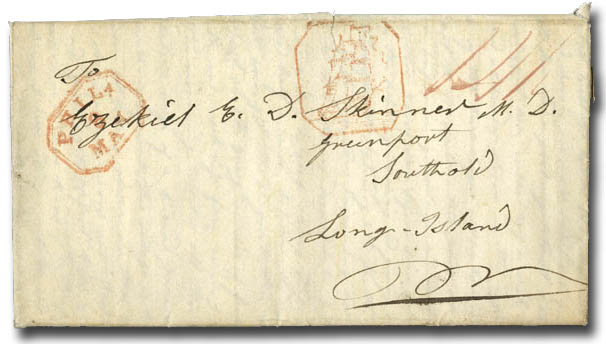 To
Ezekiel E. D. Skinner M. D.
Greenport
Southold
Long-Island
PHILA
MA